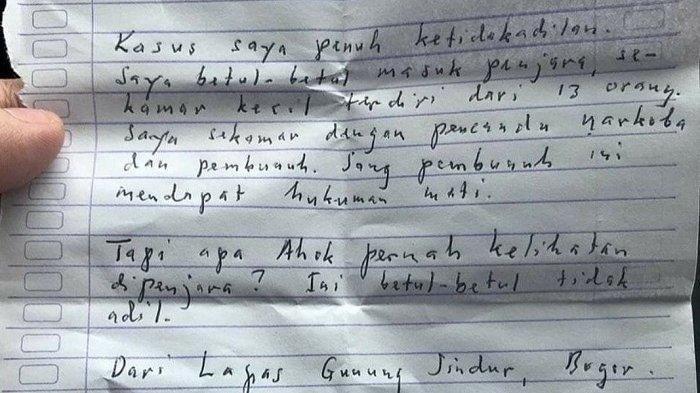 Kasus saya penuh ketidakadilan.
Saya betul-betul masuk penjara, se-
kamar kecil terdiri dari 13 orang.
Saya sekamar dengan pencandu narkoba
dan pembunuh. Sang pembunuh ini
mendapat hukuman mati.
Tapi apa Ahok pernah kelihatan
dipenjara? Ini betul-betul tidak
adil.
Dari Lapas Gunung Sindur, Bogor.